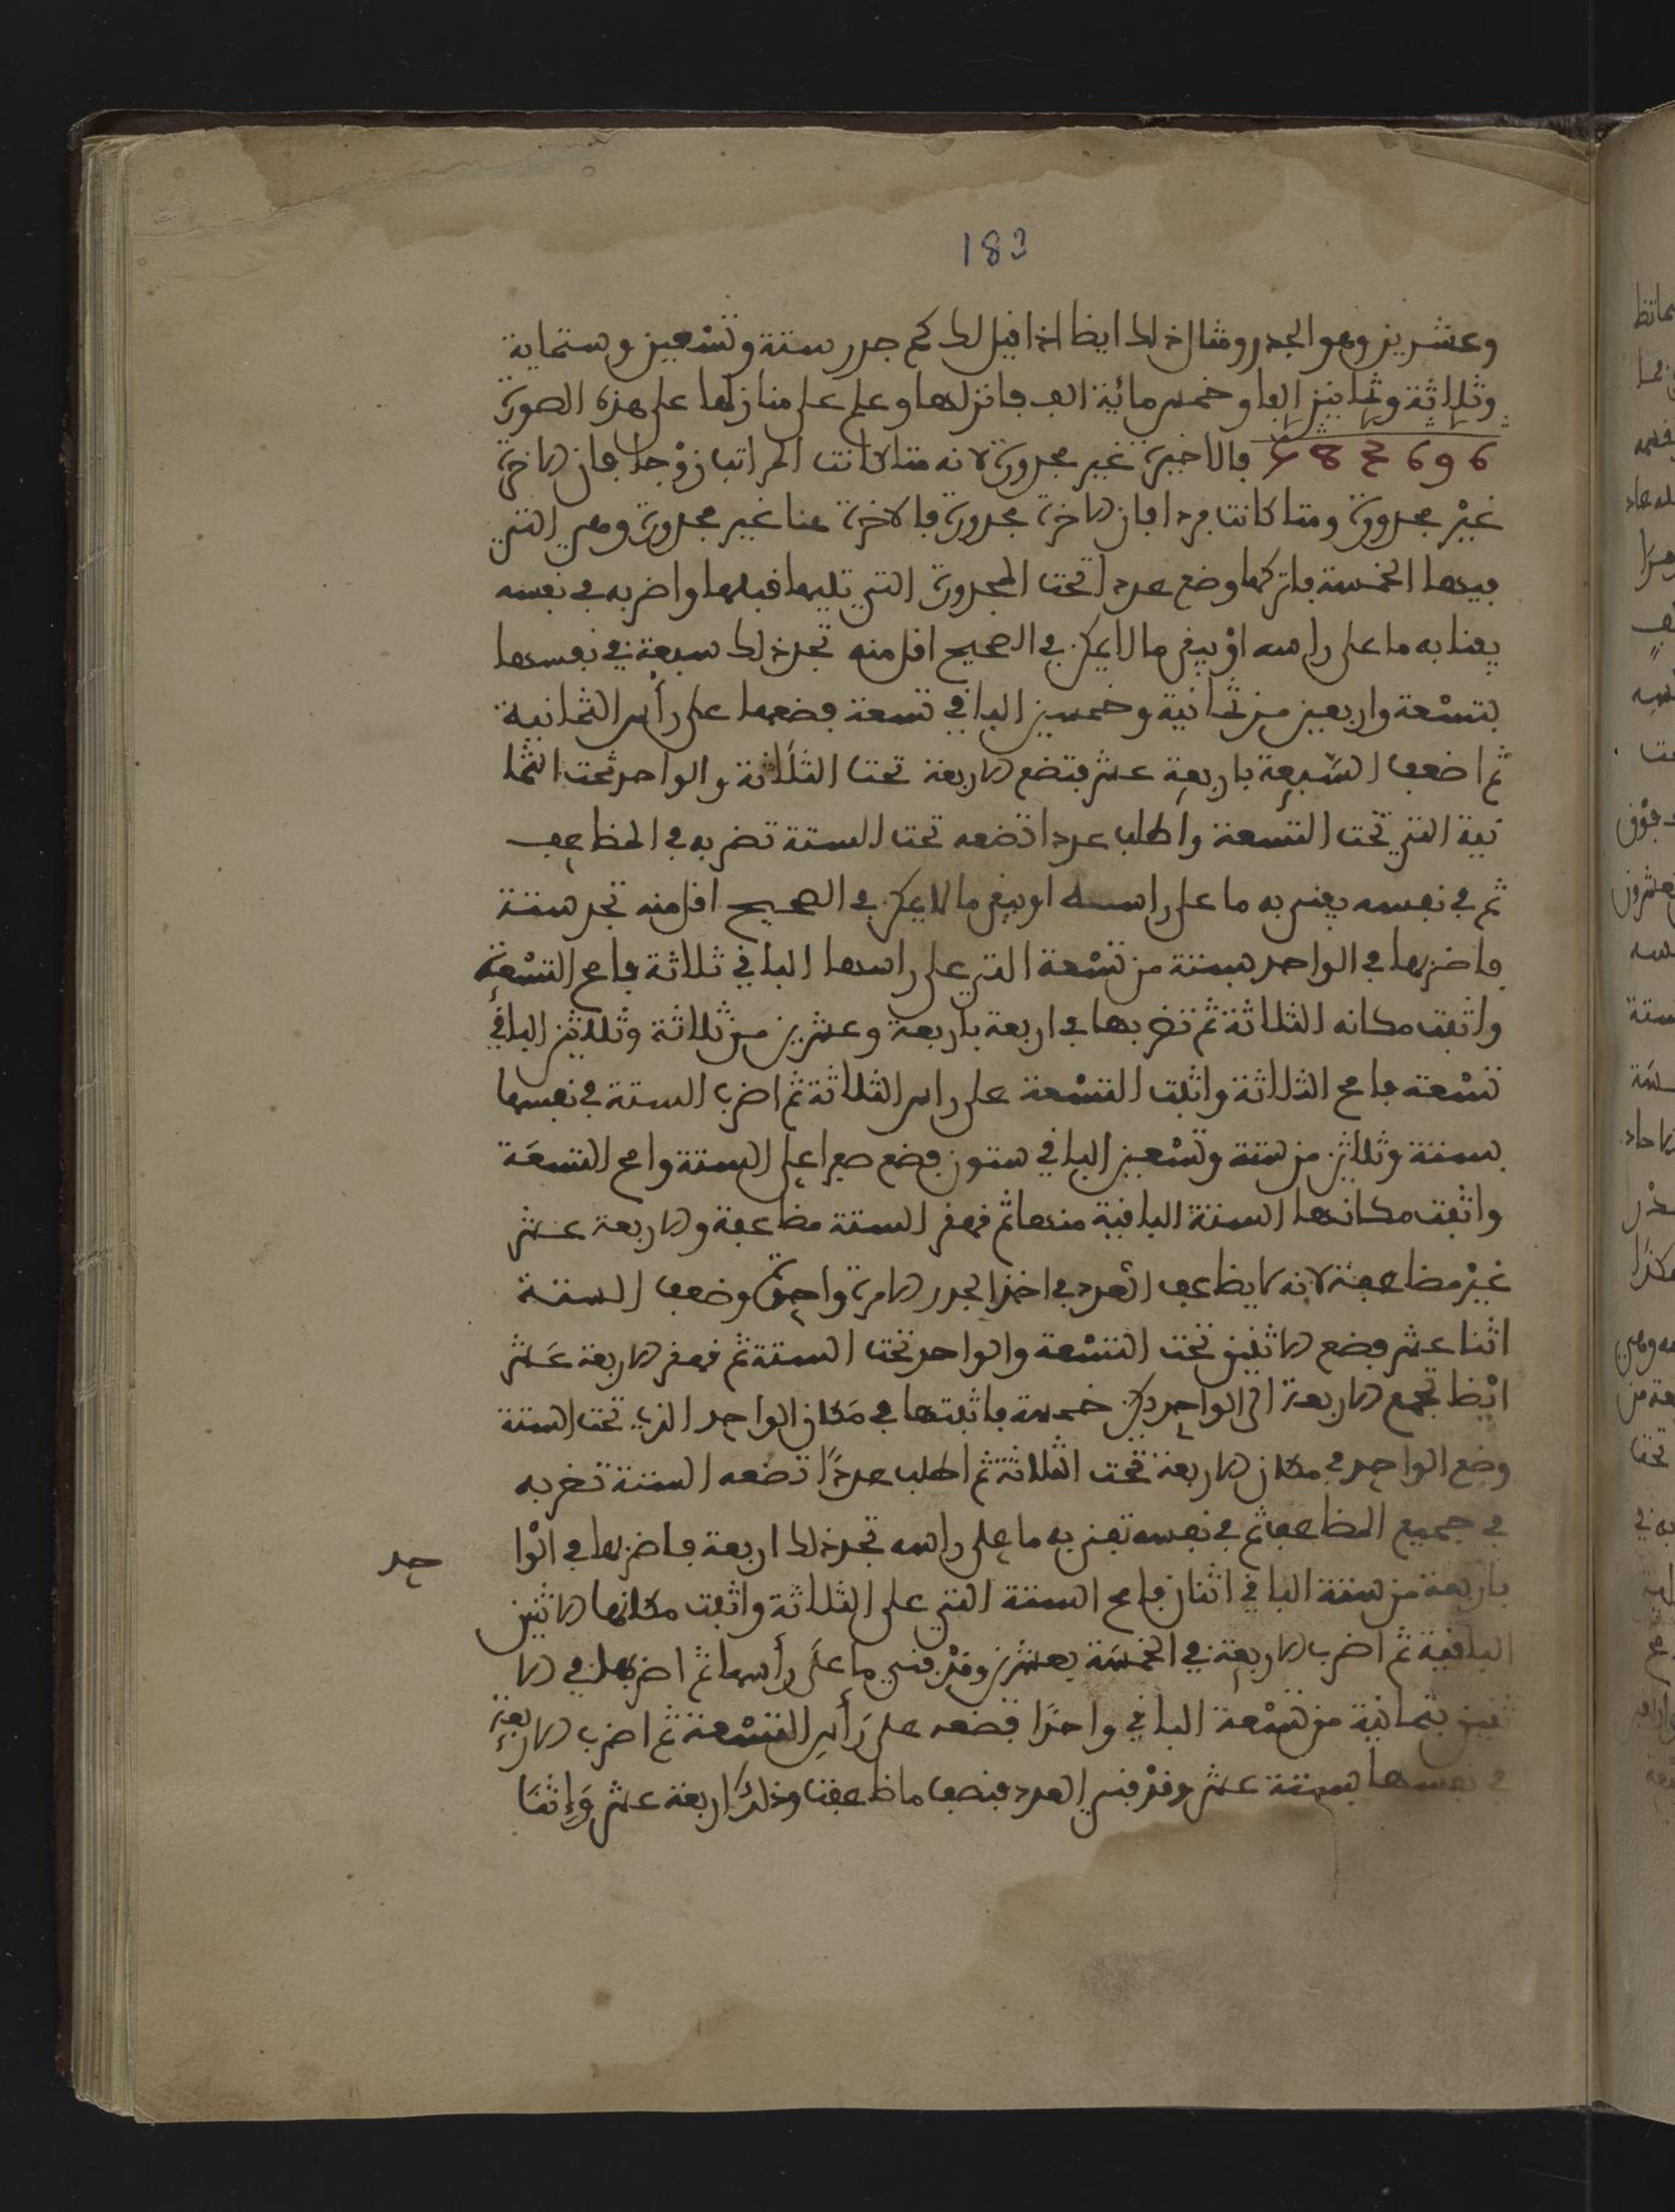 183
وعشرين وهو الجدر ومثال ذلك ايظا اذا قيل لك كم جدر ستة وتسعين وستماية
وثلاثة وثمانين الفا وخمس مائية الف فانزلها وعلم على منازلها على هذه الصورة
583696 فالاخيرة غير مجدورة لانه متا كانت المراتب زوجا فان الاخرة
غير مجدورة ومتا كانت فردا فان الاخرة مجدورة فالاخرة هنا غير مجدورة وهي التي
فيها الخمسة فاتركها وضع عددا تحت المجدورة التي تليها قبلها واضربه في نفسه
يفنا به ما على راسه او يبقى ما لا يمكن في الصحيح اقل منه تجد ذلك سبعة في نفسها
بتسعة واربعين من ثمانية وخمسين الباقي تسعة فضعها على رأس الثمانية
ثم اضعف السبعة باربعة عشر فتضع الاربعة تحت الثلاثة والواحد تحت الثما
نية التي تحت التسعة واطلب عددا تضعه تحت الستة تضربه في المظاعف
ثم في نفسه يفنى به ما على راسه او يبقى ما لا يمكن في الصحيح اقل منه تجد ستة
فاضربها في الواحد بستة من تسعة التي على راسها الباقي ثلاثة فامح التسعة
واثبت مكانه الثلاثة ثم تضربها في اربعة باربعة وعشرين من ثلاثة وثلاثين الباقي
تسعة فامح الثلاثة واثبت التسعة على راس الثلاثة ثم اضرب الستة في نفسها
بستة وثلاثين من ستة وتسعين الباقي ستون فضع صفرا على الستة وامح التسعة
واثبت مكانها الستة الباقية منها ثم قهقر الستة مظاعفة والاربعة عشر
غير مظاعفة لانه لا يظاعف العدد في اخذ الجدر الا مرة واحدة وضعف الستة
اثنا عشر فضع الاثنين تحت التسعة والواحد تحت الستة ثم قهقر الاربعة عشر
ايظا تجمع الاربعة الى الواحد يكن خمسة فاثبتها في مكان الواحد الذي تحت الستة
وضع الواحد في مكان الاربعة تحت الثلاثة ثم اطلب عددا تضعه الستة تضربه
في جميع المظاعف ثم في نفسه تفني به ما على راسه تجد ذلك اربعة فاضربها في الوا حد
باربعة من ستة الباقي اثنان فامح الستة التي على الثلاثة واثبت مكانها الاثنين
الباقية ثم اضرب الاربعة في الخمسة بعشرين وقد فني ما على رأسها ثم اضربها في الا
ثنين بثمانية من تسعة الباقي واحدا فضعه على رأس التسعة ثم اضرب الاربعة
في نفسها بستة عشر وقد فني العدد فنصف ما ظاعفت وذلك اربعة عشر وإثنا